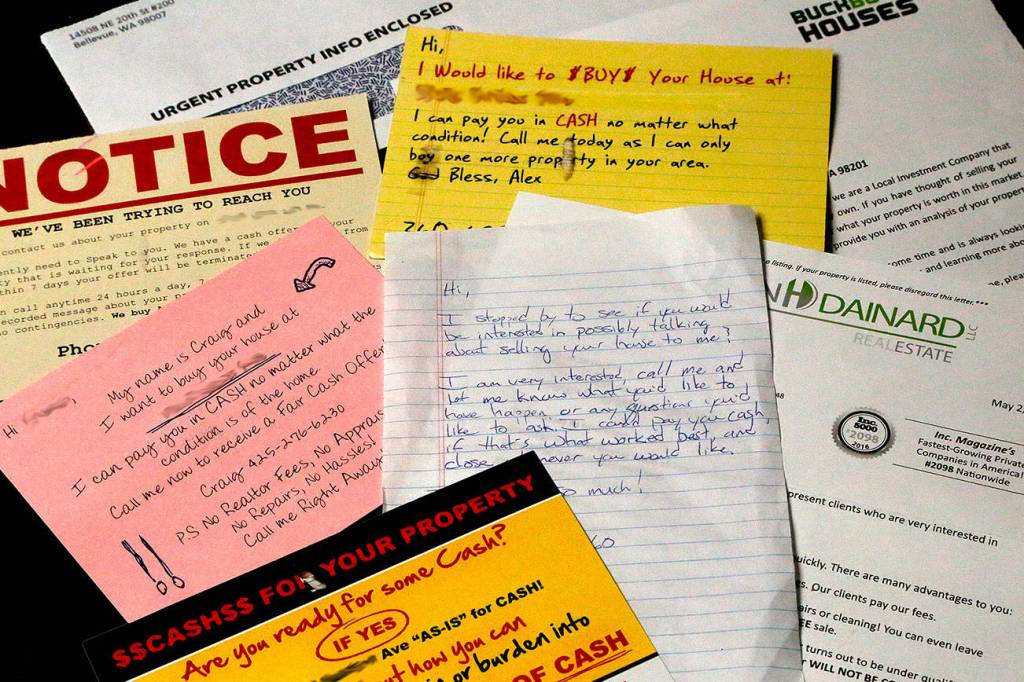 14508 NE 20th St #200
Bellevue, WA 98007
URGENT PROPERTY INFO ENCLOSED
HOUSES
Hi,
I Would like to $BUY$ Your House at:
I can pay you in CASH no matter what
condition! Call me today as I can only
one more property in your area.
Bless, Alex
98201
we are a Local Investment Company that
own. If you have thought of selling your
what your property is worth in this market
provide you with an analysis of your
time and is always
and learning more
NOTICE
WE'VE BEEN TRYING TO REACH YOU
contact us about your property on
need to Speak to you. We have a cash
that is waiting for your response. If we
7 days your offer will be
call anytime 24 hours a day, 7
message about your
no contingencies. We buy
Hi
My name is Craig and
I want to buy your house at
I can pay you in CASH no matter what the
condition is of the home
Call me now to receive a Fair Cash Offer
Craig 425-276-6230
P.S No Realtor Fees, No
No Repairs, No Hassles!
Call me Right
!!
Hi,
I stopped by to see if you would
be interested in possibly talking
about selling your house to me?
I am very interested, call me and
let me know what you'd like to
have happen, or any questions you'd
like to ask. I could pay you cash,
if that's what worked best, and
close you would like.
so much!
60
listing. If your property is listed, please disregard this letter.***
DAINARD LLC
REALESTATE
Inc.
5000
2098
2016
May
Inc. Magazine's
Fastest-Growing
Companies in America!
#2098 Nationwide
clients who are very interested in
There are many advantages to you:
Our clients pay our fees.
or cleaning! You can even leave
sale.
turns out to be under
WILL NOT BE
$$CASH$$ FOR YOUR PROPERTY
Are you ready for some Cash?
IF YES
"AS-IS" for CASH!
how you can
or burden into
OF CASH